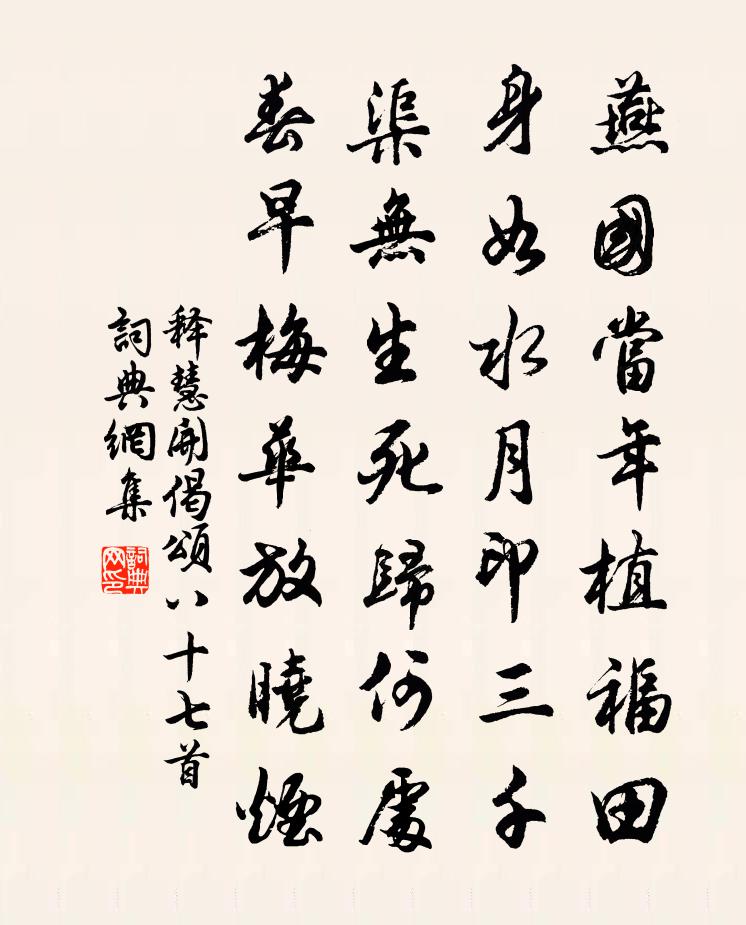 燕國當年植福田
身如水月印三千
渠無生死歸何處
春早梅華放曉煙
释慧開偈頌八十七首
詞典網集
詞典網印